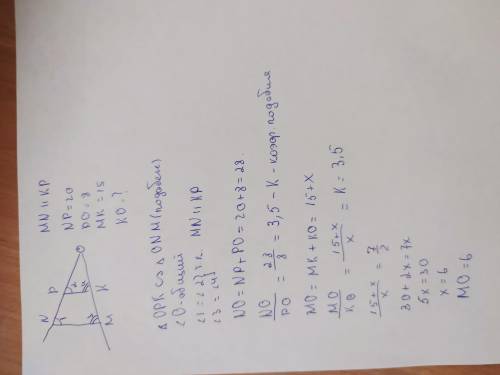 MN || KP
NP = 20
PO = 8
MK = 15
KO = ?
N P O
M K
△ OPK ∽ △ ONM (подобен)
∠O - общий
∠1 = ∠2 т.к. MN || KP
∠3 = ∠4
NO = NP + PO = 20 + 8 = 28.
NO/PO = 28/8 = 3,5 - K - коэф. подобия
MO = MK + KO = 15 + x
MO/KO = 15+x/x = K = 3,5
15+x/x = 7/2
30 + 2x = 7x
5x = 30
x = 6
MO = 6